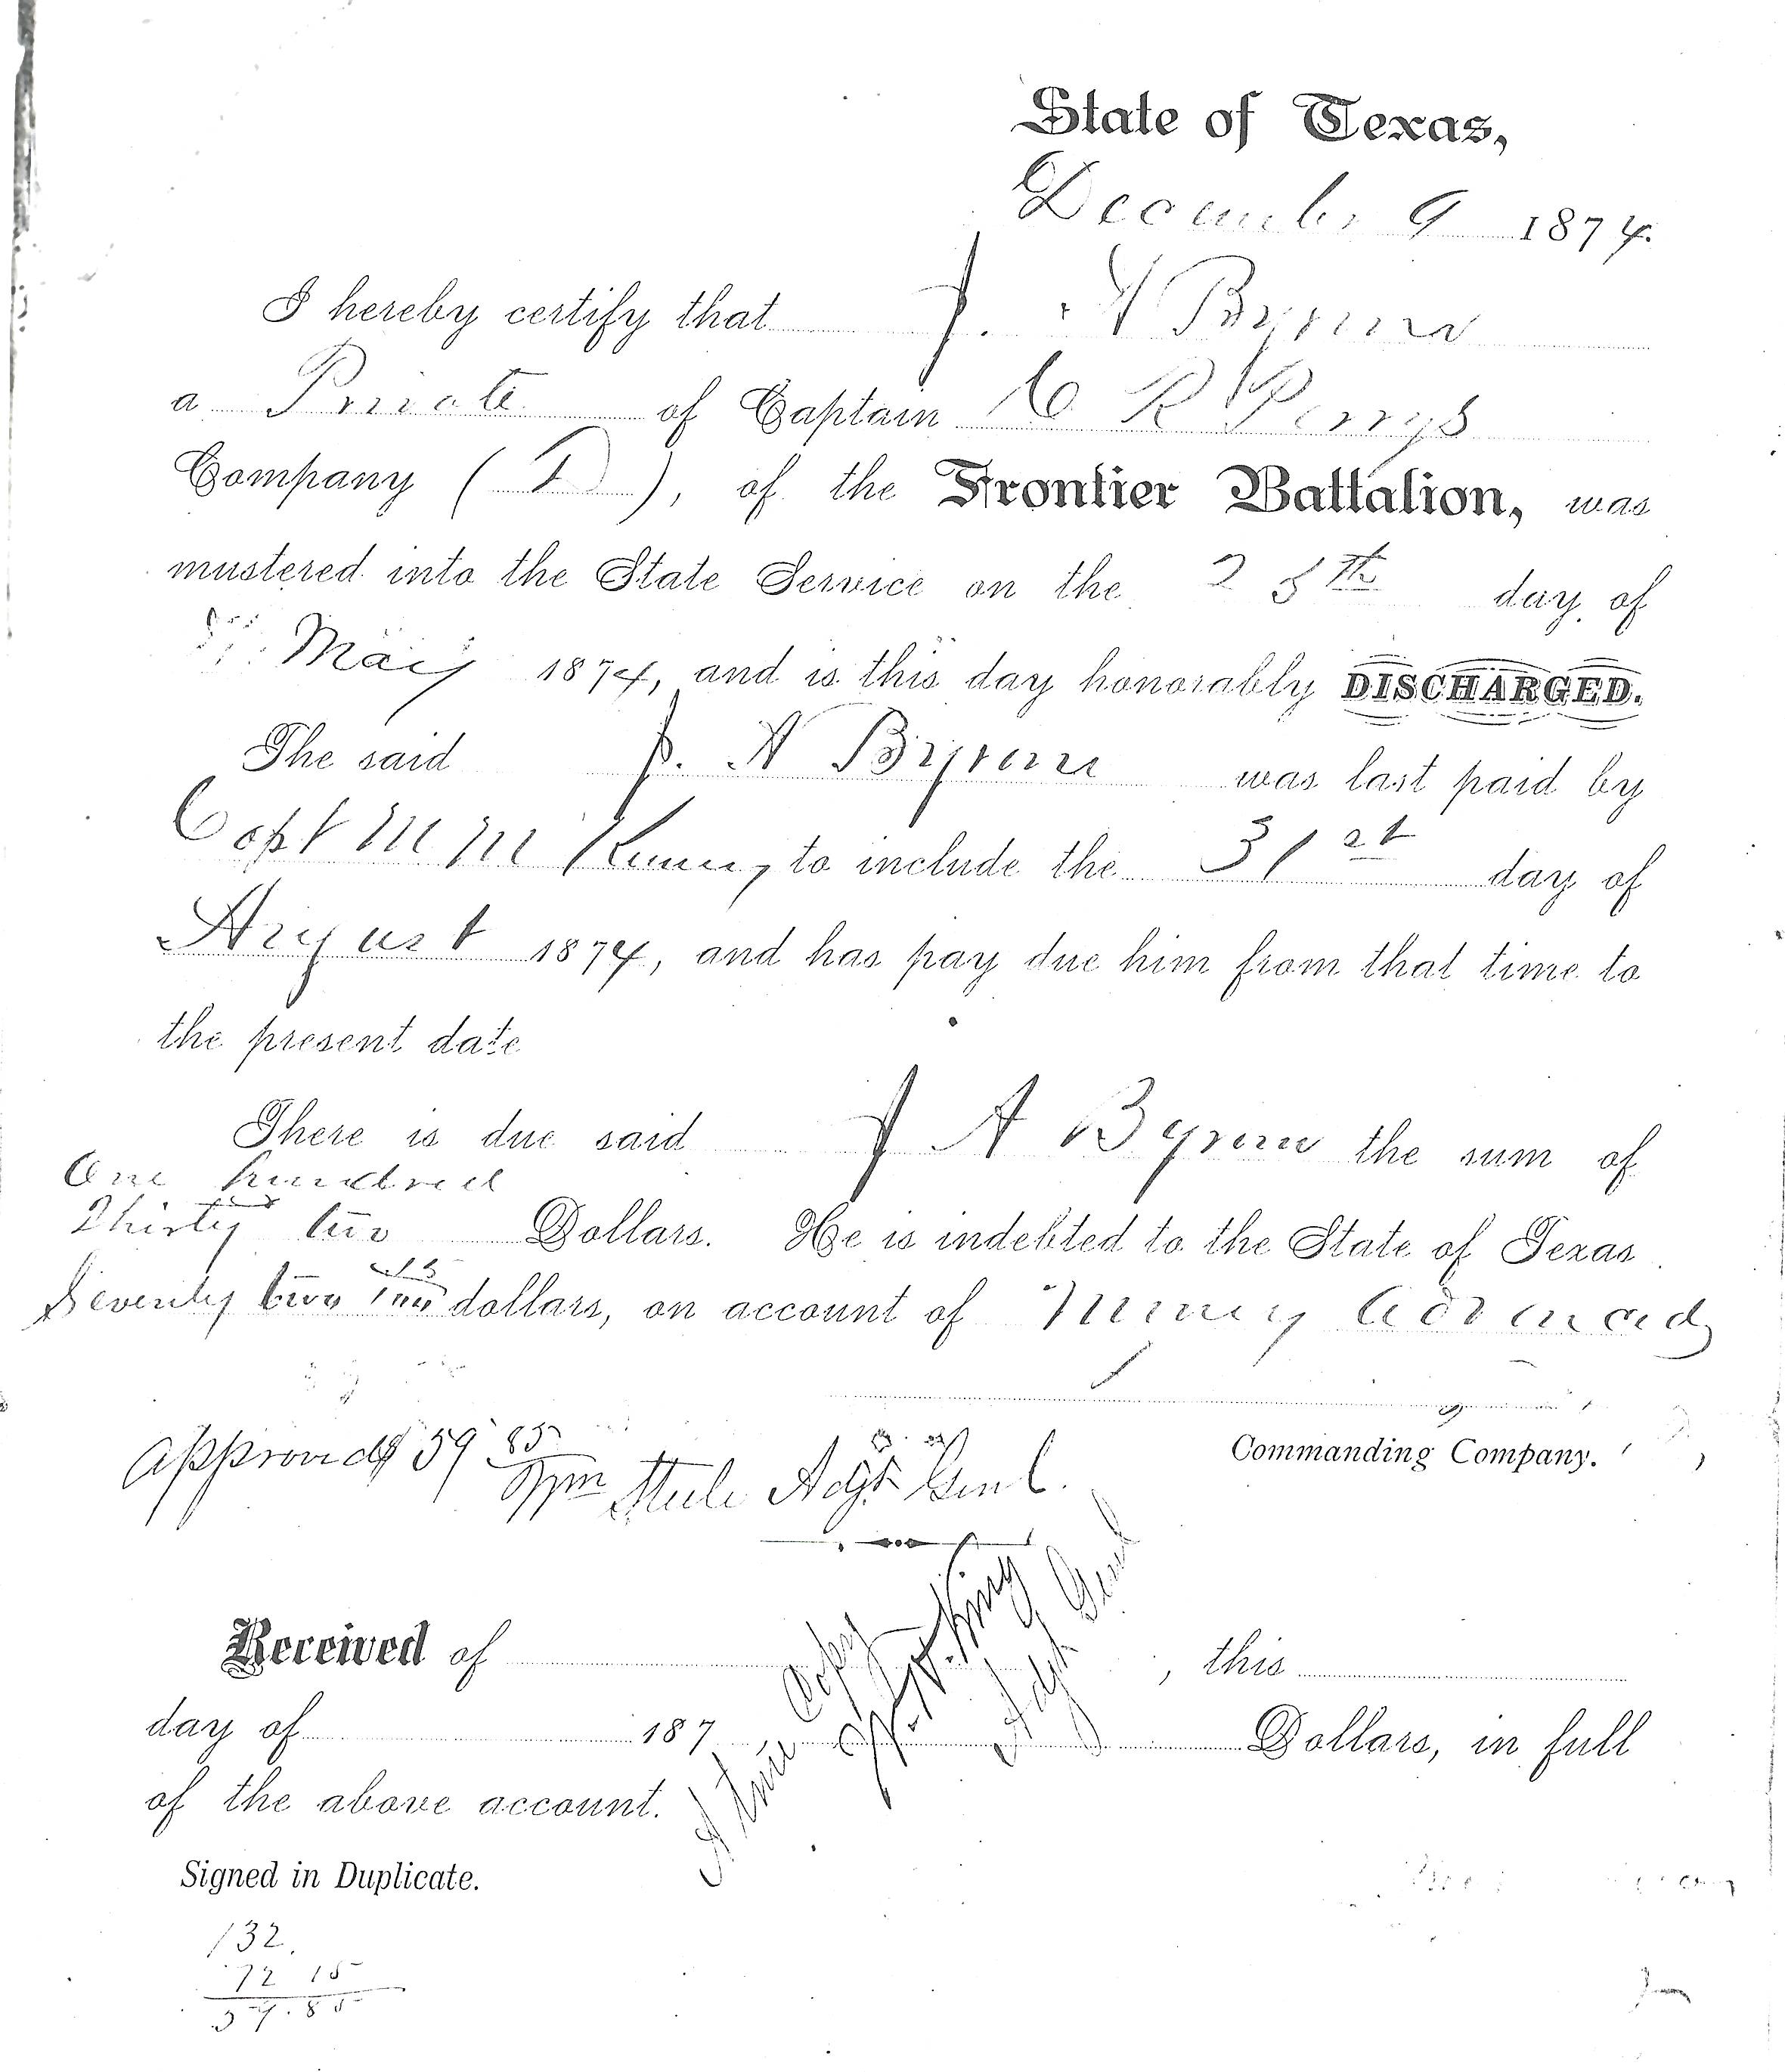 State of Texas,
December 9 1874.
I hereby certify that J. A Byrnn
a Private of Captain C R Perrys
Company ( D ), of the Frontier Battalion, was
mustered into the State Service on the 25th day of
May 1874, and is this day honorably DISCHARGED.
The said J. A Byrnn was last paid by
Capt M M Kenney to include the 31st day of
August 1874, and has pay due him from that time to
the present date
There is due said J A Byrnn the sum of
One hundred
Thirty two Dollars. He is indebted to the State of Texas
Seventy two 15/100 dollars, on account of
Commanding Company.
Approved $59 85
Wm Steele Adjt Genl.
A true Copy
W. H. King
Adjt Genl
Received of , this
day of 187 , Dollars, in full
of the above account.
Signed in Duplicate.
132.
72 15
59.85